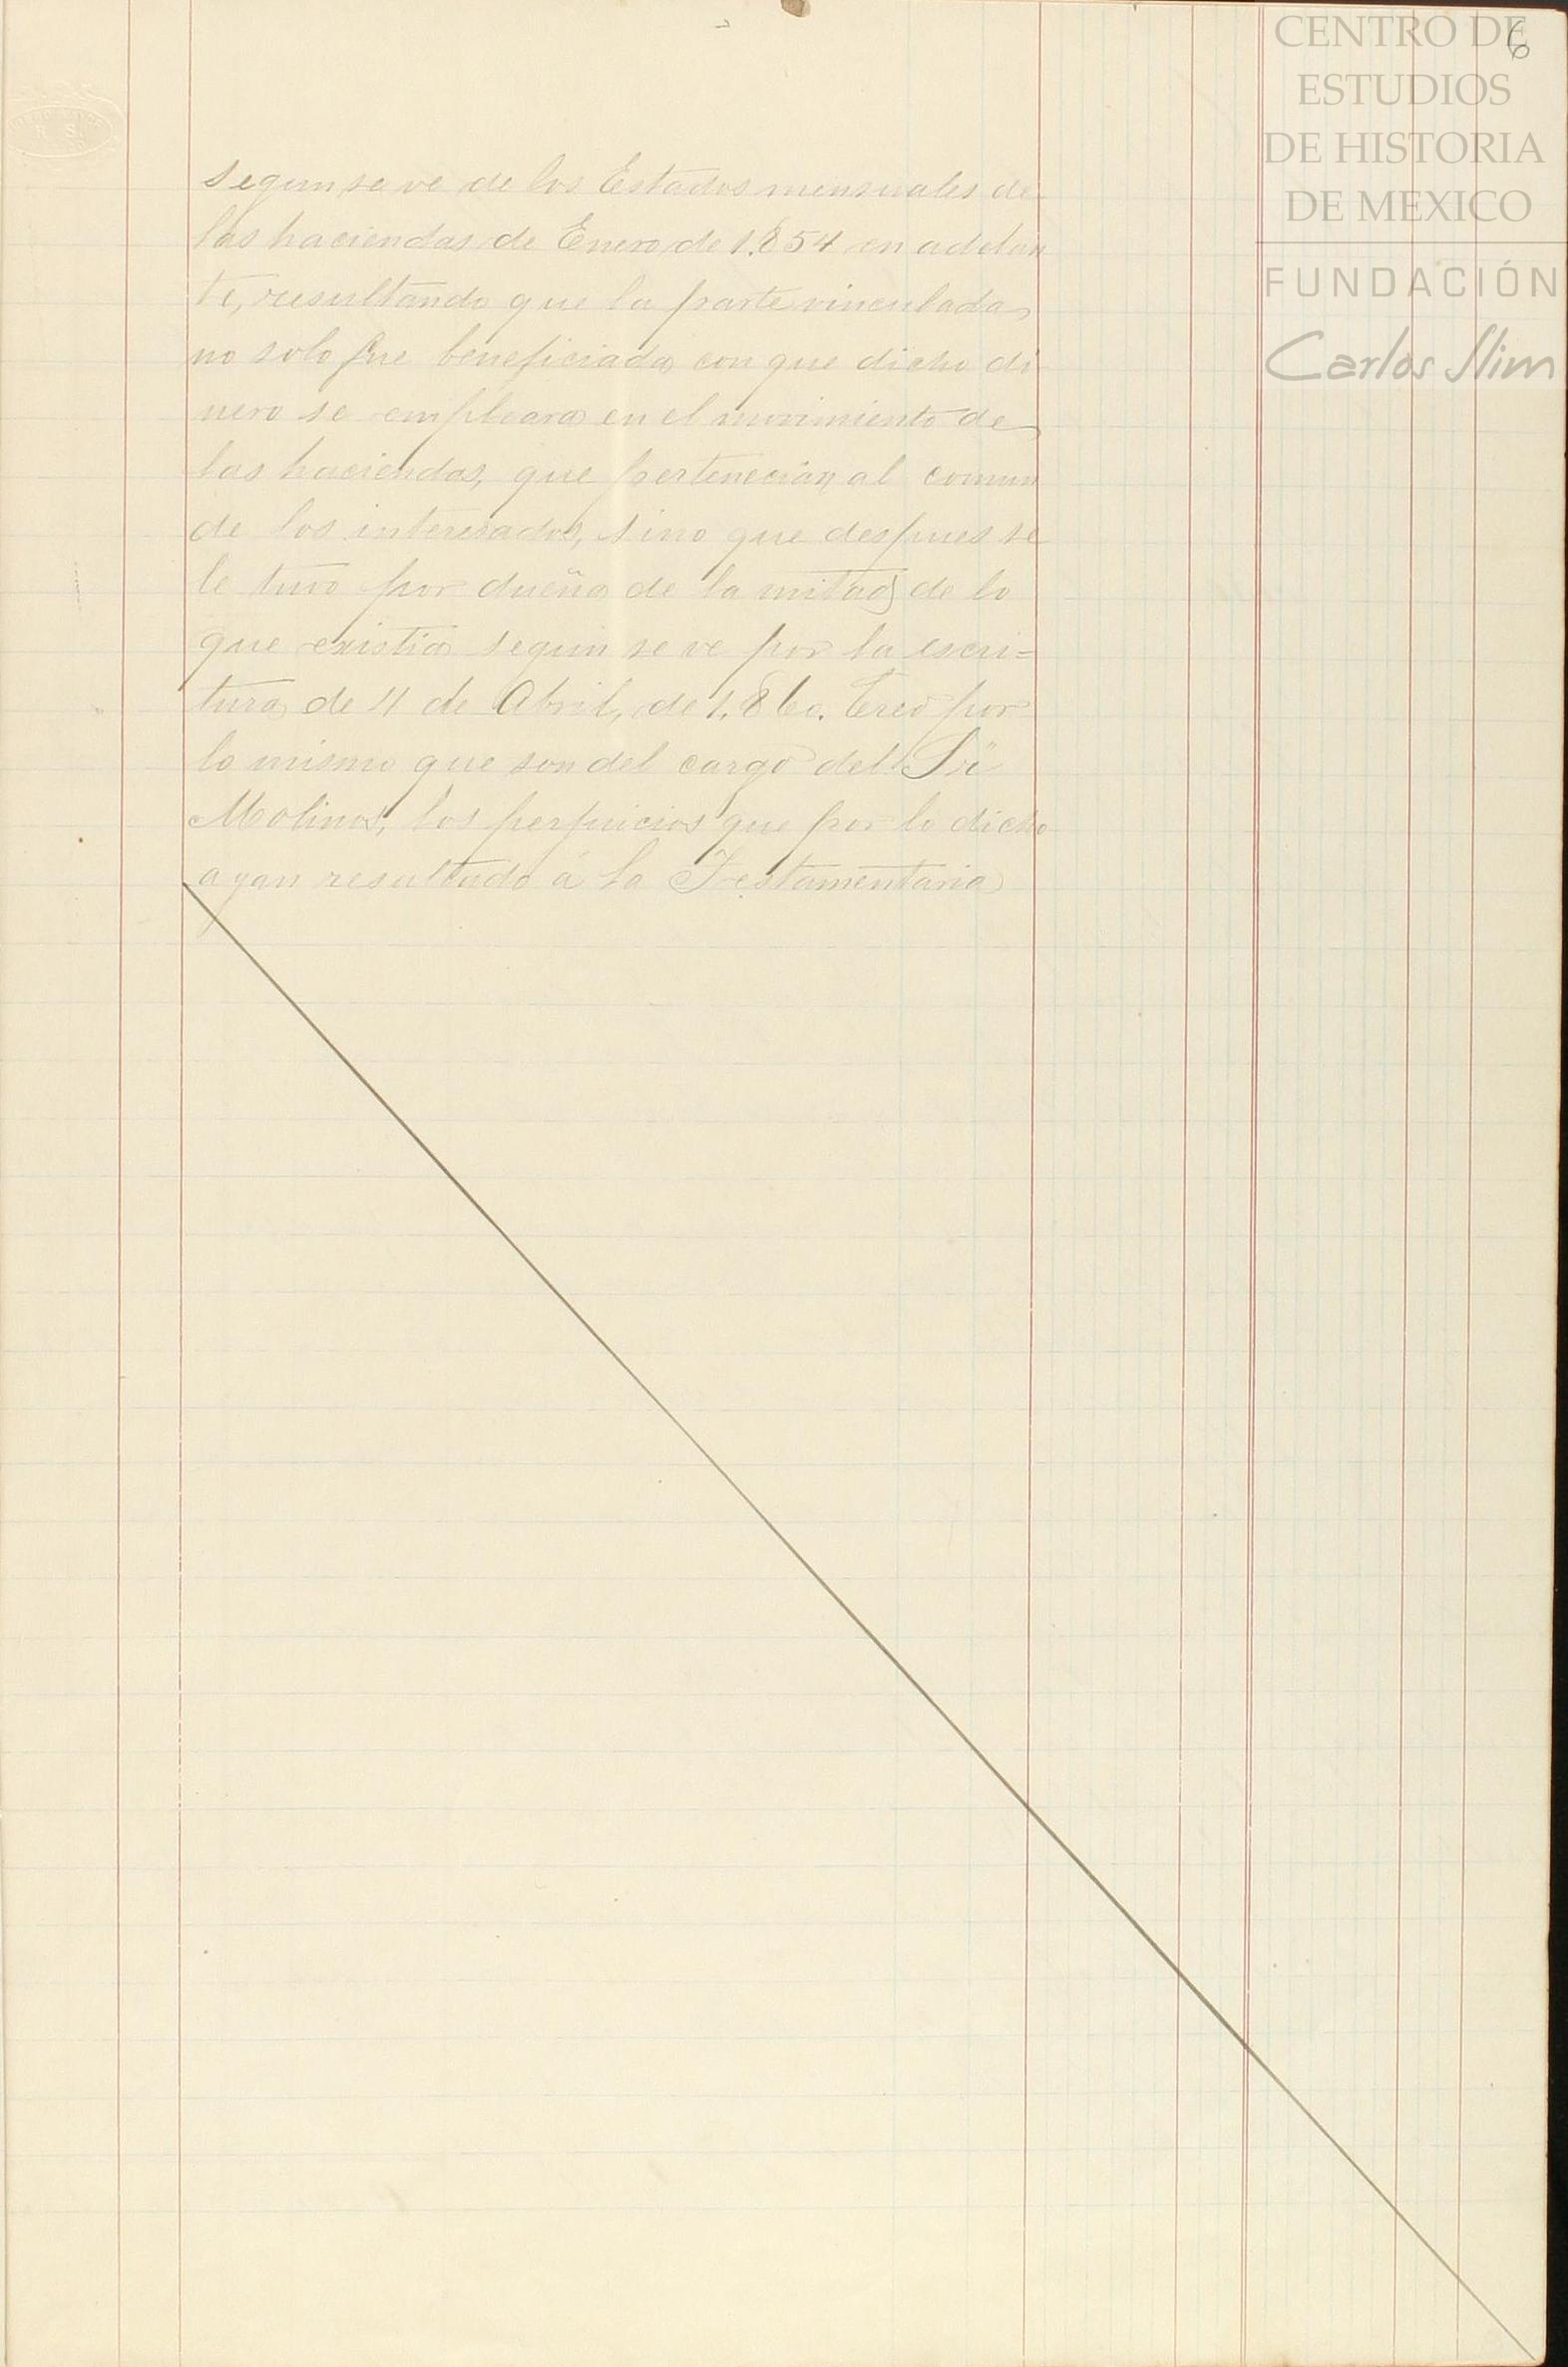 6
CENTRO DE
ESTUDIOS
DE HISTORIA
DE MEXICO
FUNDACIÓN
Carlos Slim
segun se ve de los Estados mensuales de
las haciendas de Enero de 1.854 en adelan
te, resultando que la parte vinculada
no solo fue beneficiada con que dicho di
nero se empleara en el movimiento de
las haciendas, que pertenecian al comun
de los interesados, sino que despues se
le tuvo por dueña de la mitad de lo
que existia segun se ve por la escri=
tura de 4 de Abril, de 1.860. Creo por
lo mismo que son del cargo del Sr
Molinos, los perjuicios que por lo dicho
ayan resultado á la Testamentaria